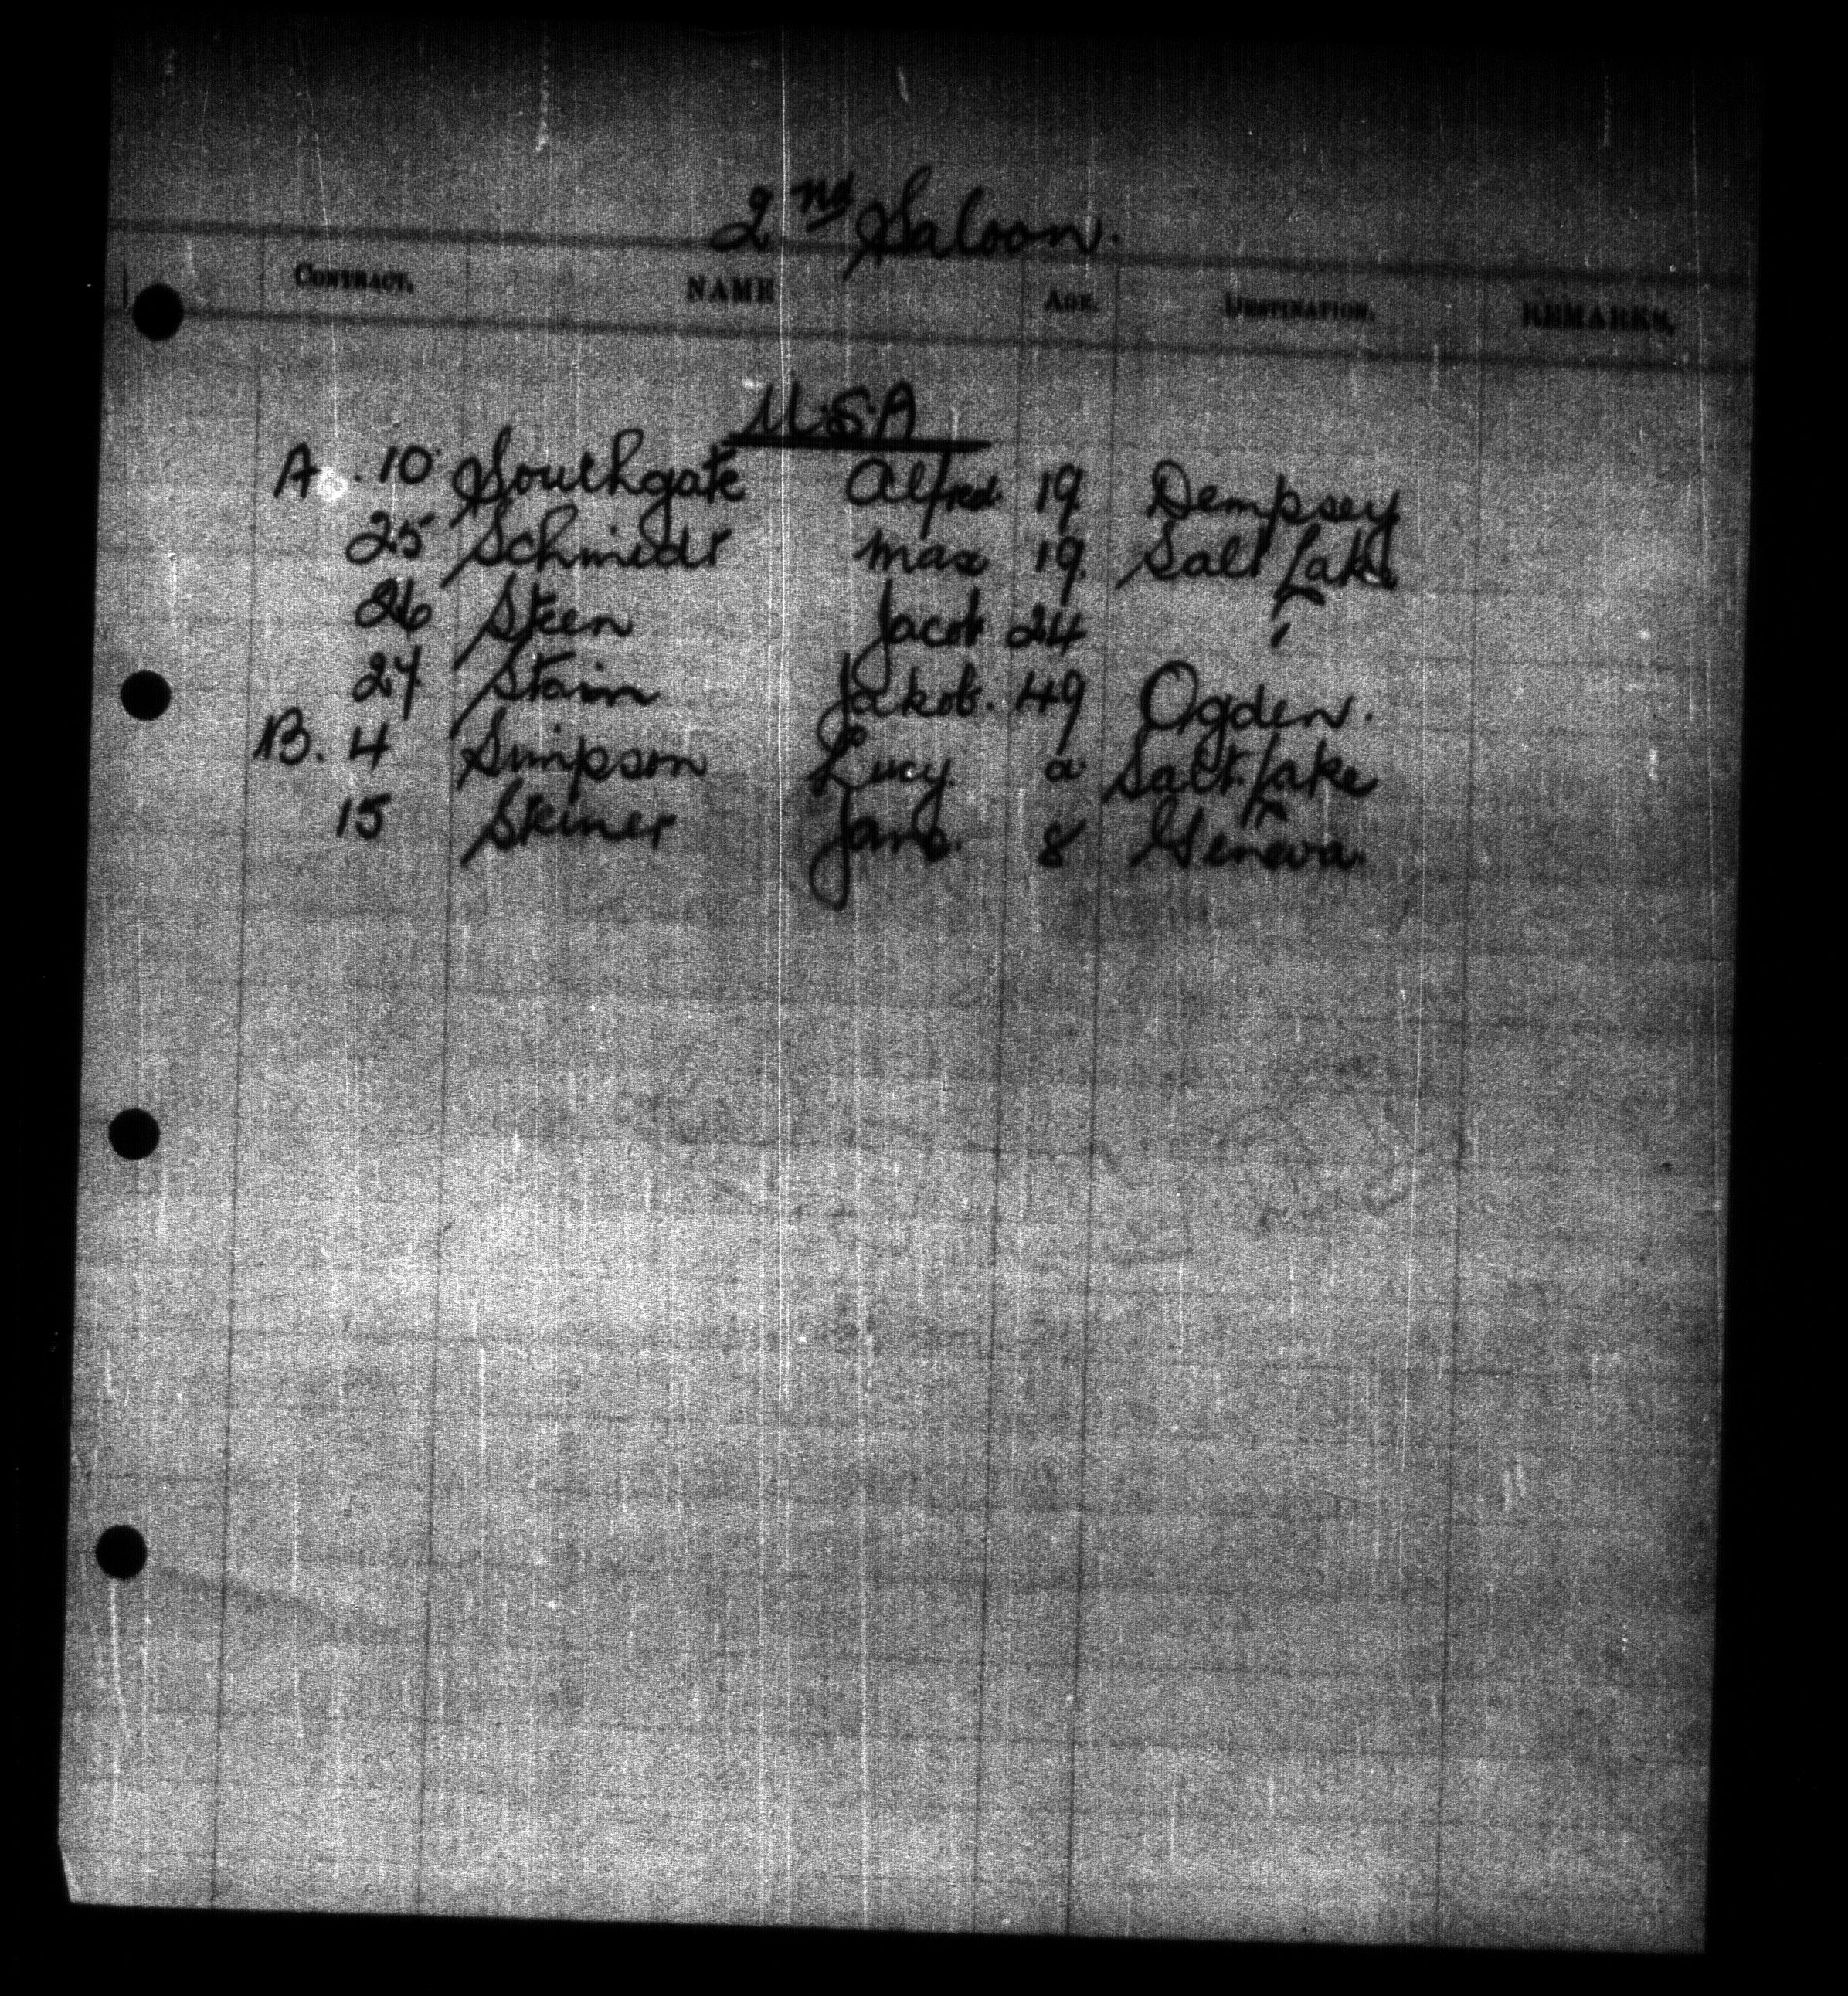 2nd Saloon.
CONTRACT. NAME AGE. DESTINATION. REMARKS.
U.S.A
A. 10 Southgate Alfred. 19 Dempsey
25 Schmidt Max 19. Salt Lake
26 Steen Jacob 24 "
27 Stam Jakob. 49 Ogden.
B. 4 Simpson Lucy. a Salt. Lake
15 Steiner Jane. 8 Geneva.